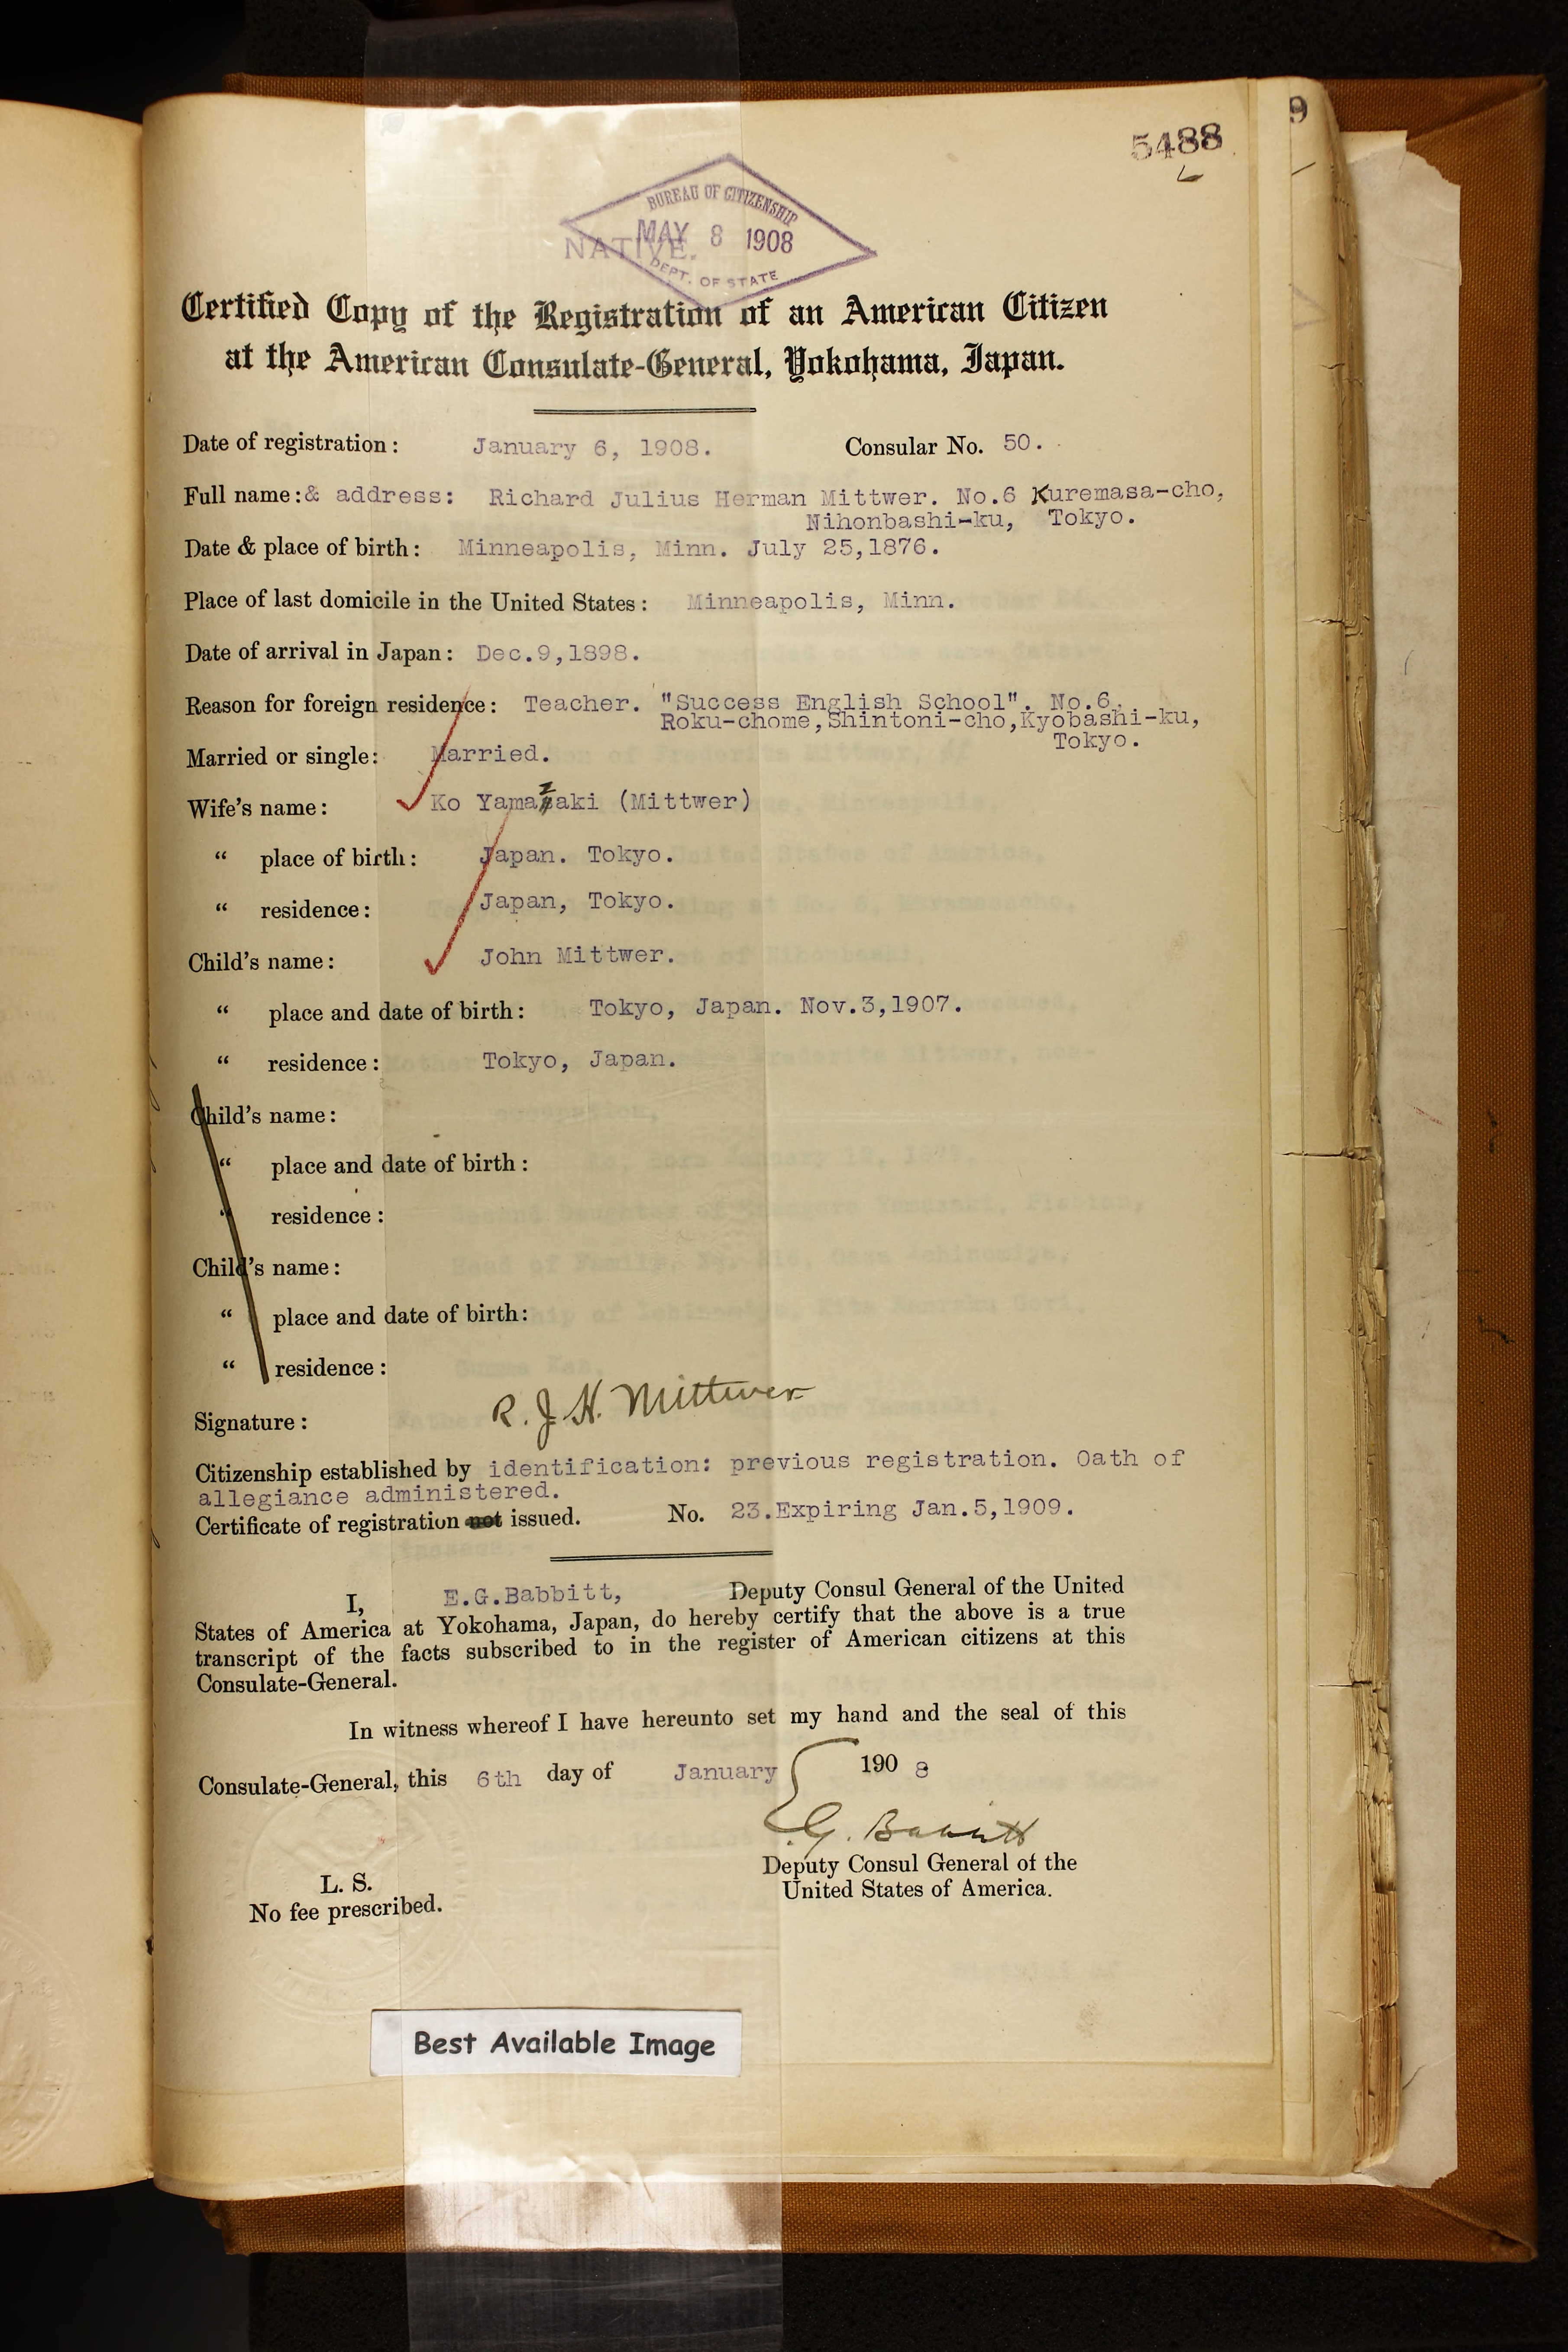 9
5488
BUREAU OF CITIZENSHIP
MAY 8 1908
NATIVE.
DEPT. OF STATE
Certified Copy of the Registration of an American Citizen
at the American Consulate-General, Yokohama, Japan.
Date of registration: January 6, 1908. Consular No. 50.
Full name:& address: Richard Julius Herman Mittwer. No.6 Kuremasa-cho,
Nihonbashi-ku, Tokyo.
Date & place of birth: Minneapolis, Minn. July 25,1876.
Place of last domicile in the United States: Minneapolis, Minn.
Date of arrival in Japan: Dec.9,1898.
Reason for foreign residence: Teacher. "Success English School". No.6,
Roku-chome,Shintoni-cho,Kyobashi-ku,
Tokyo.
Married or single: Married.
Wife's name: Ko Yamazaki (Mittwer)
“ place of birth: Japan. Tokyo.
“ residence: Japan, Tokyo.
Child's name: John Mittwer.
“ place and date of birth: Tokyo, Japan. Nov.3,1907.
“ residence: Tokyo, Japan.
Child's name:
“ place and date of birth:
“ residence:
Child's name:
“ place and date of birth:
“ residence:
Signature: R. J. H. Mittwer
Citizenship established by identification: previous registration. Oath of
allegiance administered.
Certificate of registration not issued. No. 23.Expiring Jan.5,1909.
I, E.G.Babbitt, Deputy Consul General of the United
States of America at Yokohama, Japan, do hereby certify that the above is a true
transcript of the facts subscribed to in the register of American citizens at this
Consulate-General.
In witness whereof I have hereunto set my hand and the seal of this
Consulate-General, this 6th day of January 190 8
E. G. Babbitt
Deputy Consul General of the
United States of America.
L. S.
No fee prescribed.
Best Available Image